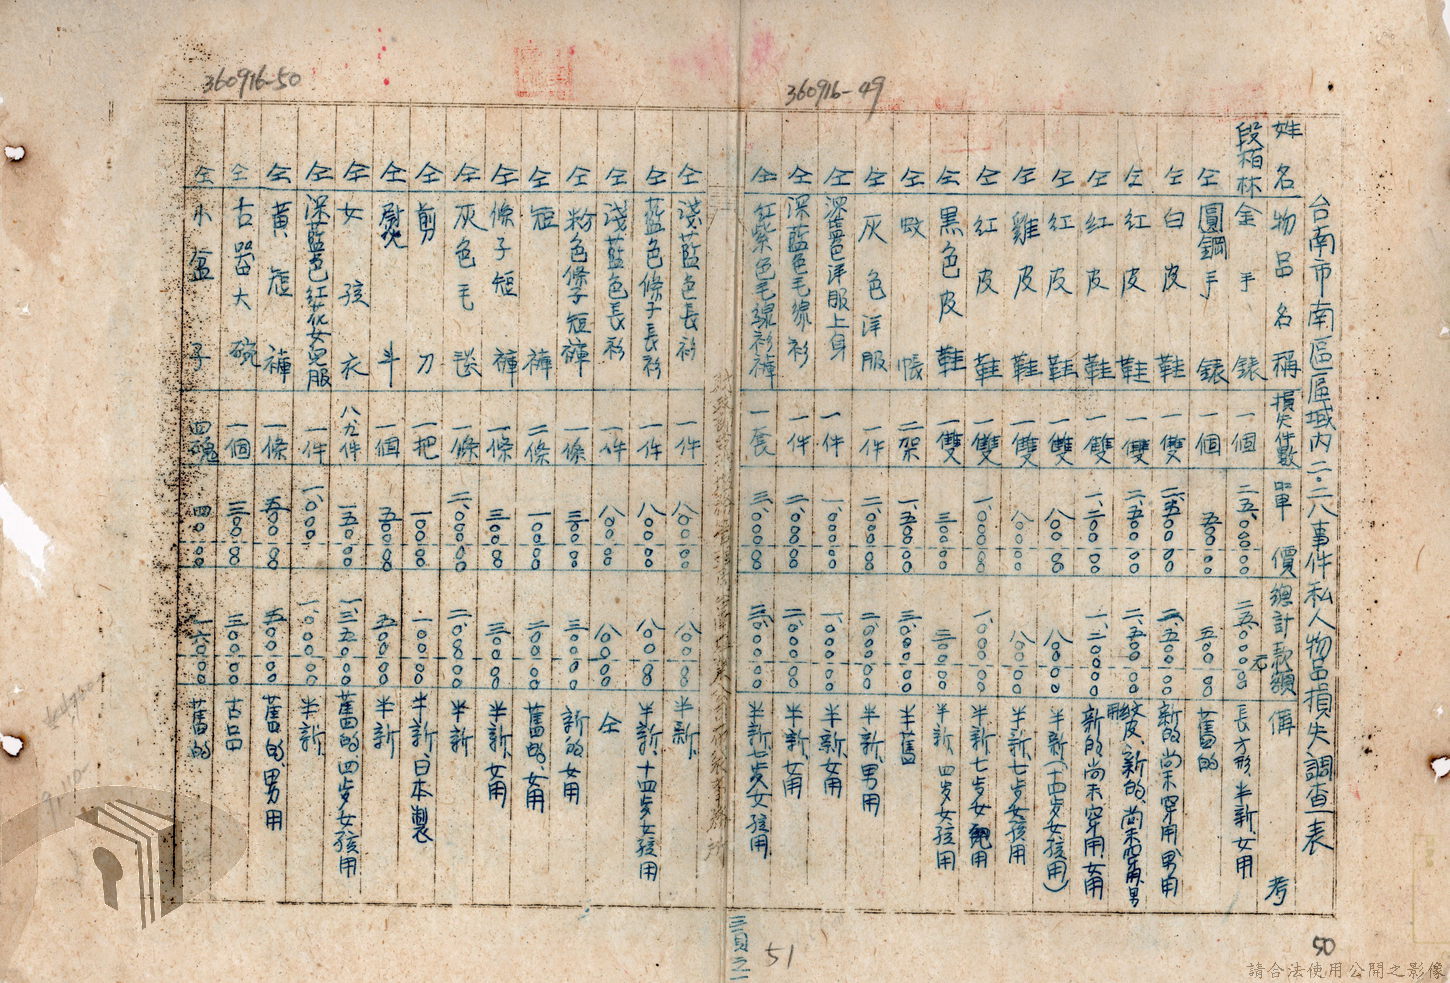 360916-50
360916-49
台南市南區區域內二·二八事件私人物品損失調查表
姓名 物品名稱 損失件數 單價 總計款額 備考
段柏林 金手錶 一個 二五、〇〇〇〇〇 二五、〇〇〇〇〇元 長方形、半新、女用
仝 圓鋼手錶 一個 五〇〇〇〇 五〇〇〇〇 舊的
仝 白皮鞋 一雙 二、五〇〇〇〇 二、五〇〇〇〇 新的尚未穿用、男用
仝 紅皮鞋 一雙 二、五〇〇〇〇 二、五〇〇〇〇 紋皮、新的、尚未穿用、男用
仝 紅皮鞋 一雙 一、二〇〇〇〇 一、二〇〇〇〇 新的尚未穿用、女用
仝 紅皮鞋 一雙 八〇〇〇〇 八〇〇〇〇 半新(十四歲女孩用)
仝 雞皮鞋 一雙 八〇〇〇〇 八〇〇〇〇 半新、七歲女孩用
仝 紅皮鞋 一雙 一、〇〇〇〇〇 一、〇〇〇〇〇 半新七歲女孩用
仝 黑色皮鞋 一雙 三〇〇〇〇 三〇〇〇〇 半新、四歲女孩用
仝 蚊帳 二架 一、五〇〇〇〇 三、〇〇〇〇〇 半舊
仝 灰色洋服 一件 二、〇〇〇〇〇 二、〇〇〇〇〇 半新、男用
仝 深藍色洋服上身 一件 一、〇〇〇〇〇 一、〇〇〇〇〇 半新、女用
仝 深藍色毛線衫 一件 二、〇〇〇〇〇 二、〇〇〇〇〇 半新、女用
仝 紅紫色毛線衫褲 一套 三、〇〇〇〇〇 三、〇〇〇〇〇 半新、七歲女孩用
仝 淺藍色長衫 一件 八〇〇〇〇 八〇〇〇〇 半新、
仝 藍色條子長衫 一件 八〇〇〇〇 八〇〇〇〇 半新、十四歲女孩用
仝 淺藍色長衫 一件 八〇〇〇〇 八〇〇〇〇 仝
仝 粉色條子短褲 一條 三〇〇〇〇 三〇〇〇〇 新的、女用
仝 短褲 二條 一〇〇〇〇 二〇〇〇〇 舊的、女用
仝 條子短褲 一條 三〇〇〇〇 三〇〇〇〇 半新、女用
仝 灰色毛毯 一條 二、〇〇〇〇〇 二、〇〇〇〇〇 半新
仝 剪刀 一把 一〇〇〇〇 一〇〇〇〇 半新、日本製
仝 熨斗 一個 五〇〇〇〇 五〇〇〇〇 半新
仝 女孩衣 八九件 一五〇〇〇 一、三五〇〇〇 舊的、四歲女孩用
仝 深藍色紅花女衣服 一件 一、〇〇〇 一、〇〇〇〇〇 半新、
仝 黃短褲 一條 五〇〇〇〇 五〇〇〇〇 舊的、男用
仝 古器大碗 一個 三〇〇〇〇 三〇〇〇〇 古品
仝 小盆子 四塊 四〇〇〇 一六〇〇〇 舊的
三頁之一
51
50
請合法使用公開之影像